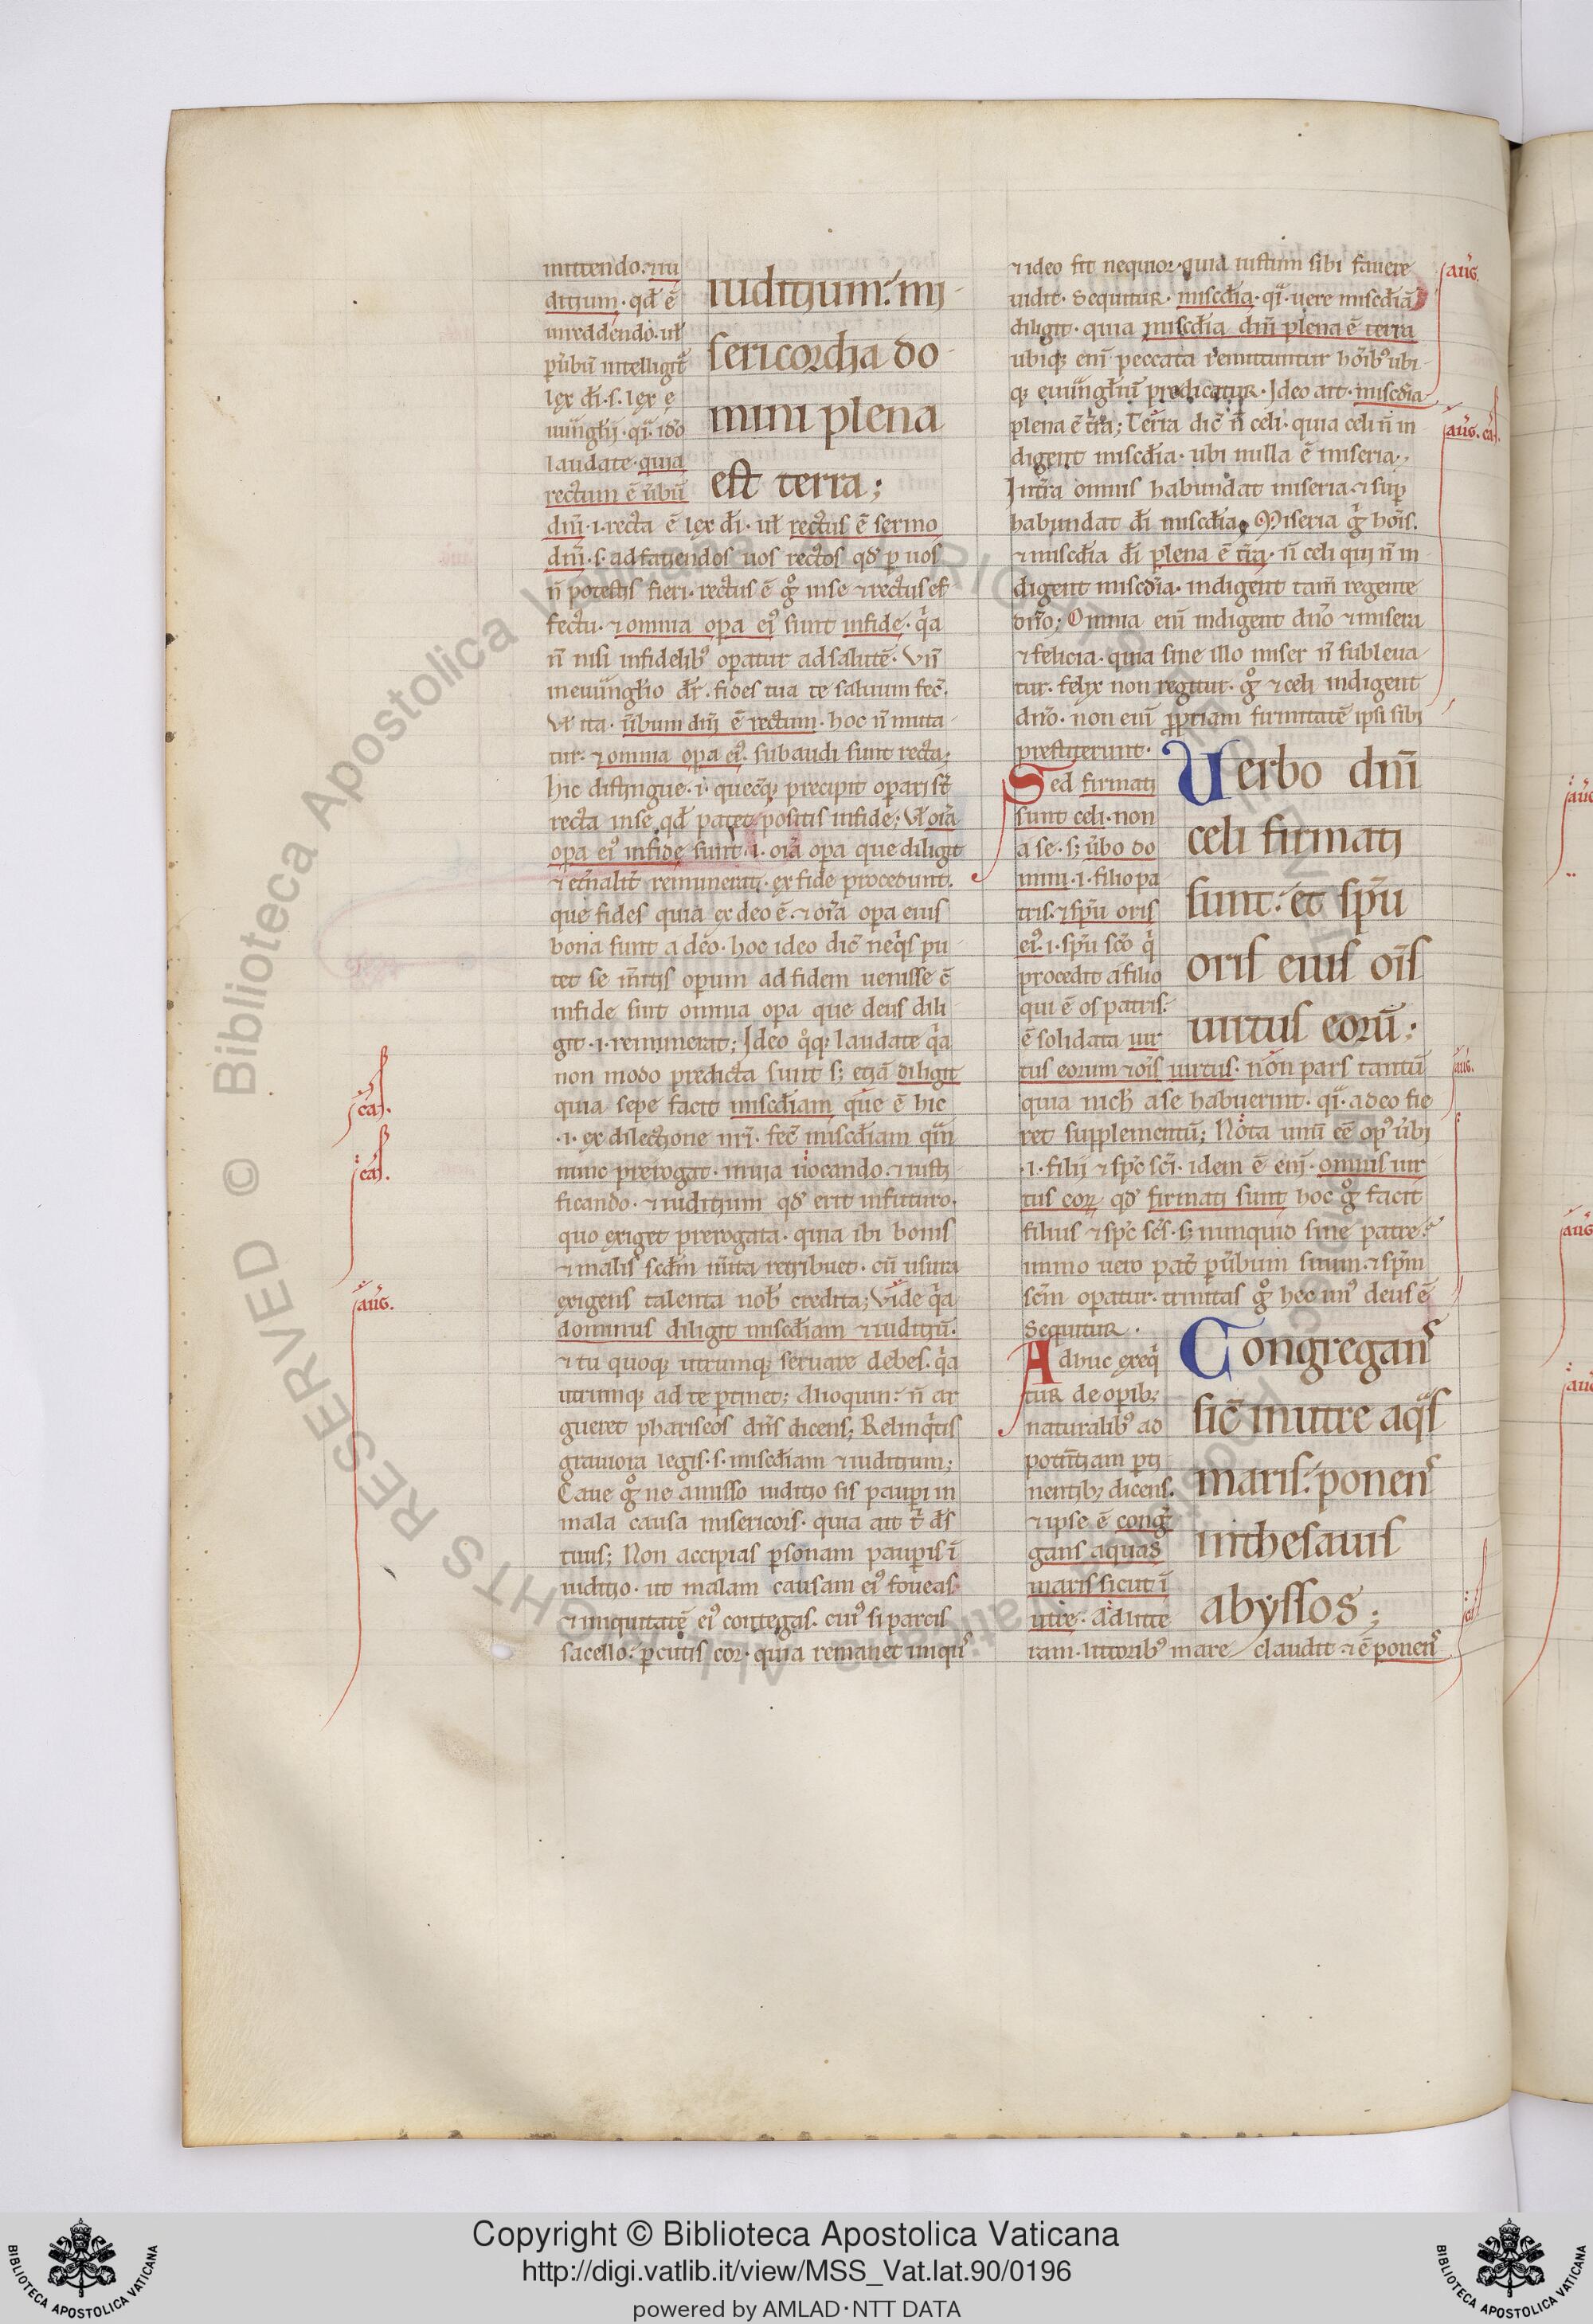 mittendo. ⁊ iu
ditium. qd̄ ē
in reddendo. ul̄
ꝑ uerbū intelligit̄
lex dī. s. lex e
uuāgłii. q. d. idō
laudate. quia
rectum ē ūbū
iuditium: mi
sericordia do
mini plena
est terra;
dn̄i. i. recta ē lex dī. ul̄ rectus ē sermo
dn̄i. s. ad faciendos uos rectos qd̄ ꝑ uos
n̄ potestis fieri. rectus ē gͦ in se ⁊ rectus ef
fectu. ⁊ omnia oꝑa eiꝰ sunt in fide. qͣa
n̄ nisi in fidelibꝰ oꝑatur ad salutē. Vn̄
in euuāgłio dr̄. fides tua te saluum fec̄.
Vł ita. ūbum dn̄i ē rectum. hoc n̄ muta
tur. ⁊ omnia oꝑa eiꝰ. subaudi sunt recta;
hic distingue. i. quecūqꝫ precipit oꝑari st̄
recta in se qd̄ patet positis in fide; Vł oīa
oꝑa eiꝰ in fide sunt. i. oīa oꝑa que diligit
⁊ et̄nalit̄ remunerat. ex fide procedunt.
que fides quia ex deo ē. ⁊ oīa oꝑa eius
bona sunt a deo. hoc ideo dic̄ neqͥs pu
tet se m̄itis oꝑum ad fidem uenisse c̄
in fide sint omnia oꝑa que deus dili
git. i. remunerat; Ideo qͦqꝫ laudate qͣa
non modo predicta sunt sꝫ etiā diligit
quia sepe facit misc̄diam que ē hic
.i. ex dilectione nr̄i. fec̄ misc̄diam qm̄
nunc prerogat. in uia uocando. ⁊ iusti
ficando. ⁊ iuditium qd̄ erit in futuro.
quo exiget prerogata. quia ibi bonis
⁊ malis sc̄dm m̄ita retribuet. cū usura
exigens talenta nob̄ credita; Vide qͣa
dominus diligit misc̄diam ⁊ iuditiū.
⁊ tu quoqꝫ utrumqꝫ seruare debes. qͣa
utrumqꝫ ad te ꝑtinet; alioquin: n̄ ar
gueret phariseos dn̄s dicens; Relinqͥtis
grauiora legis. s. misc̄diam ⁊ iuditium;
Caue gͦ ne amisso iuditio sis pauꝑi in
mala causa misericors. quia ait t̄ ds̄
tuus; Non accipias ꝑsonam pauꝑis ī
iuditio. ut malam causam eiꝰ foueas
⁊ iniquitatē eiꝰ contegas. cuiꝰ si parcis
sacello: ꝑcutis cor. quia remanet iniquꝰ
⁊ ideo fit nequior. quia iustum sibi fauere
uidit. Sequitur. misc̄dia. q. d. uere misc̄diā
diligit. quia misc̄dia dn̄i plena ē terra
ubiqꝫ enī peccata remittuntur hoībꝰ ubi
qꝫ euuāgłiū predicatur. Ideo ait. misc̄dia
plena ē t̄ra; Terra dic̄ n̄ celi. quia celi n̄ in
digent misc̄dia. ubi nulla ē miseria.
In t̄ra omnis habundat miseria. ⁊ suꝑ
habundat dī misc̄dia. Miseria gͦ hoīs.
⁊ misc̄dia dī plena ē t̄ra. n̄ celi qui n̄ in
digent misc̄dia. indigent tam̄ regente
dn̄o; Omnia enī indigent dn̄o ⁊ misera
⁊ felicia. quia sine illo miser n̄ subleua
tur. felix non regitur. gͦ ⁊ celi indigent
dn̄o. non enī ꝓpriam firmitatē ipsi sibi
prestiterunt.
Sed firmati
sunt celi. non
a se. sꝫ ūbo do
mini. i. filio pa
tris. ⁊ spū oris
eiꝰ. i. spū scō qͥ
procedit a filio
qui ē os patris.
ē solidata uir
Verbo dn̄i
celi firmati
sunt: et spū
oris eius oīs
uirtus eorū;
tus eorum ⁊ oīs uirtus. non pars tantū
quia nich̄ a se habuerint. q. d. a deo fie
ret supplementū; Nota unū eē opꝰ ūbi
.i. filii ⁊ spc̄ sc̄i. idem ē enī. omnis uir
tus eoꝝ qd̄ firmati sunt hoc gͦ facit
filius ⁊ spc̄ sc̄s. sꝫ nunquid sine patre?
immo uero pat̄ ꝑ ūbum suum. ⁊ spm̄
scm̄ oꝑatur. trinitas gͦ hec unꝰ deus ē
Sequitur.
Adhuc exeqͥ
tur de oꝑibꝫ
naturalibꝰ ad
potn̄tiam ꝑti
nentibꝫ dicens.
⁊ ipse ē conḡ
gans aquas
maris sicut ī
utre. Ad litte
Congregans
sic̄ in utre aqͣs
maris: ponens
in thesauris
abyssos;
ram. littoribꝰ mare claudit. ⁊ ē ponens
aūg.
aūg. cās.
cās.
cās.
aūg.
aūg.
Copyright © Biblioteca Apostolica Vaticana
http://digi.vatlib.it/view/MSS_Vat.lat.90/0196
powered by AMLAD·NTT DATA
BIBLIOTECA APOSTOLICA VATICANA
BIBLIOTECA APOSTOLICA VATICANA